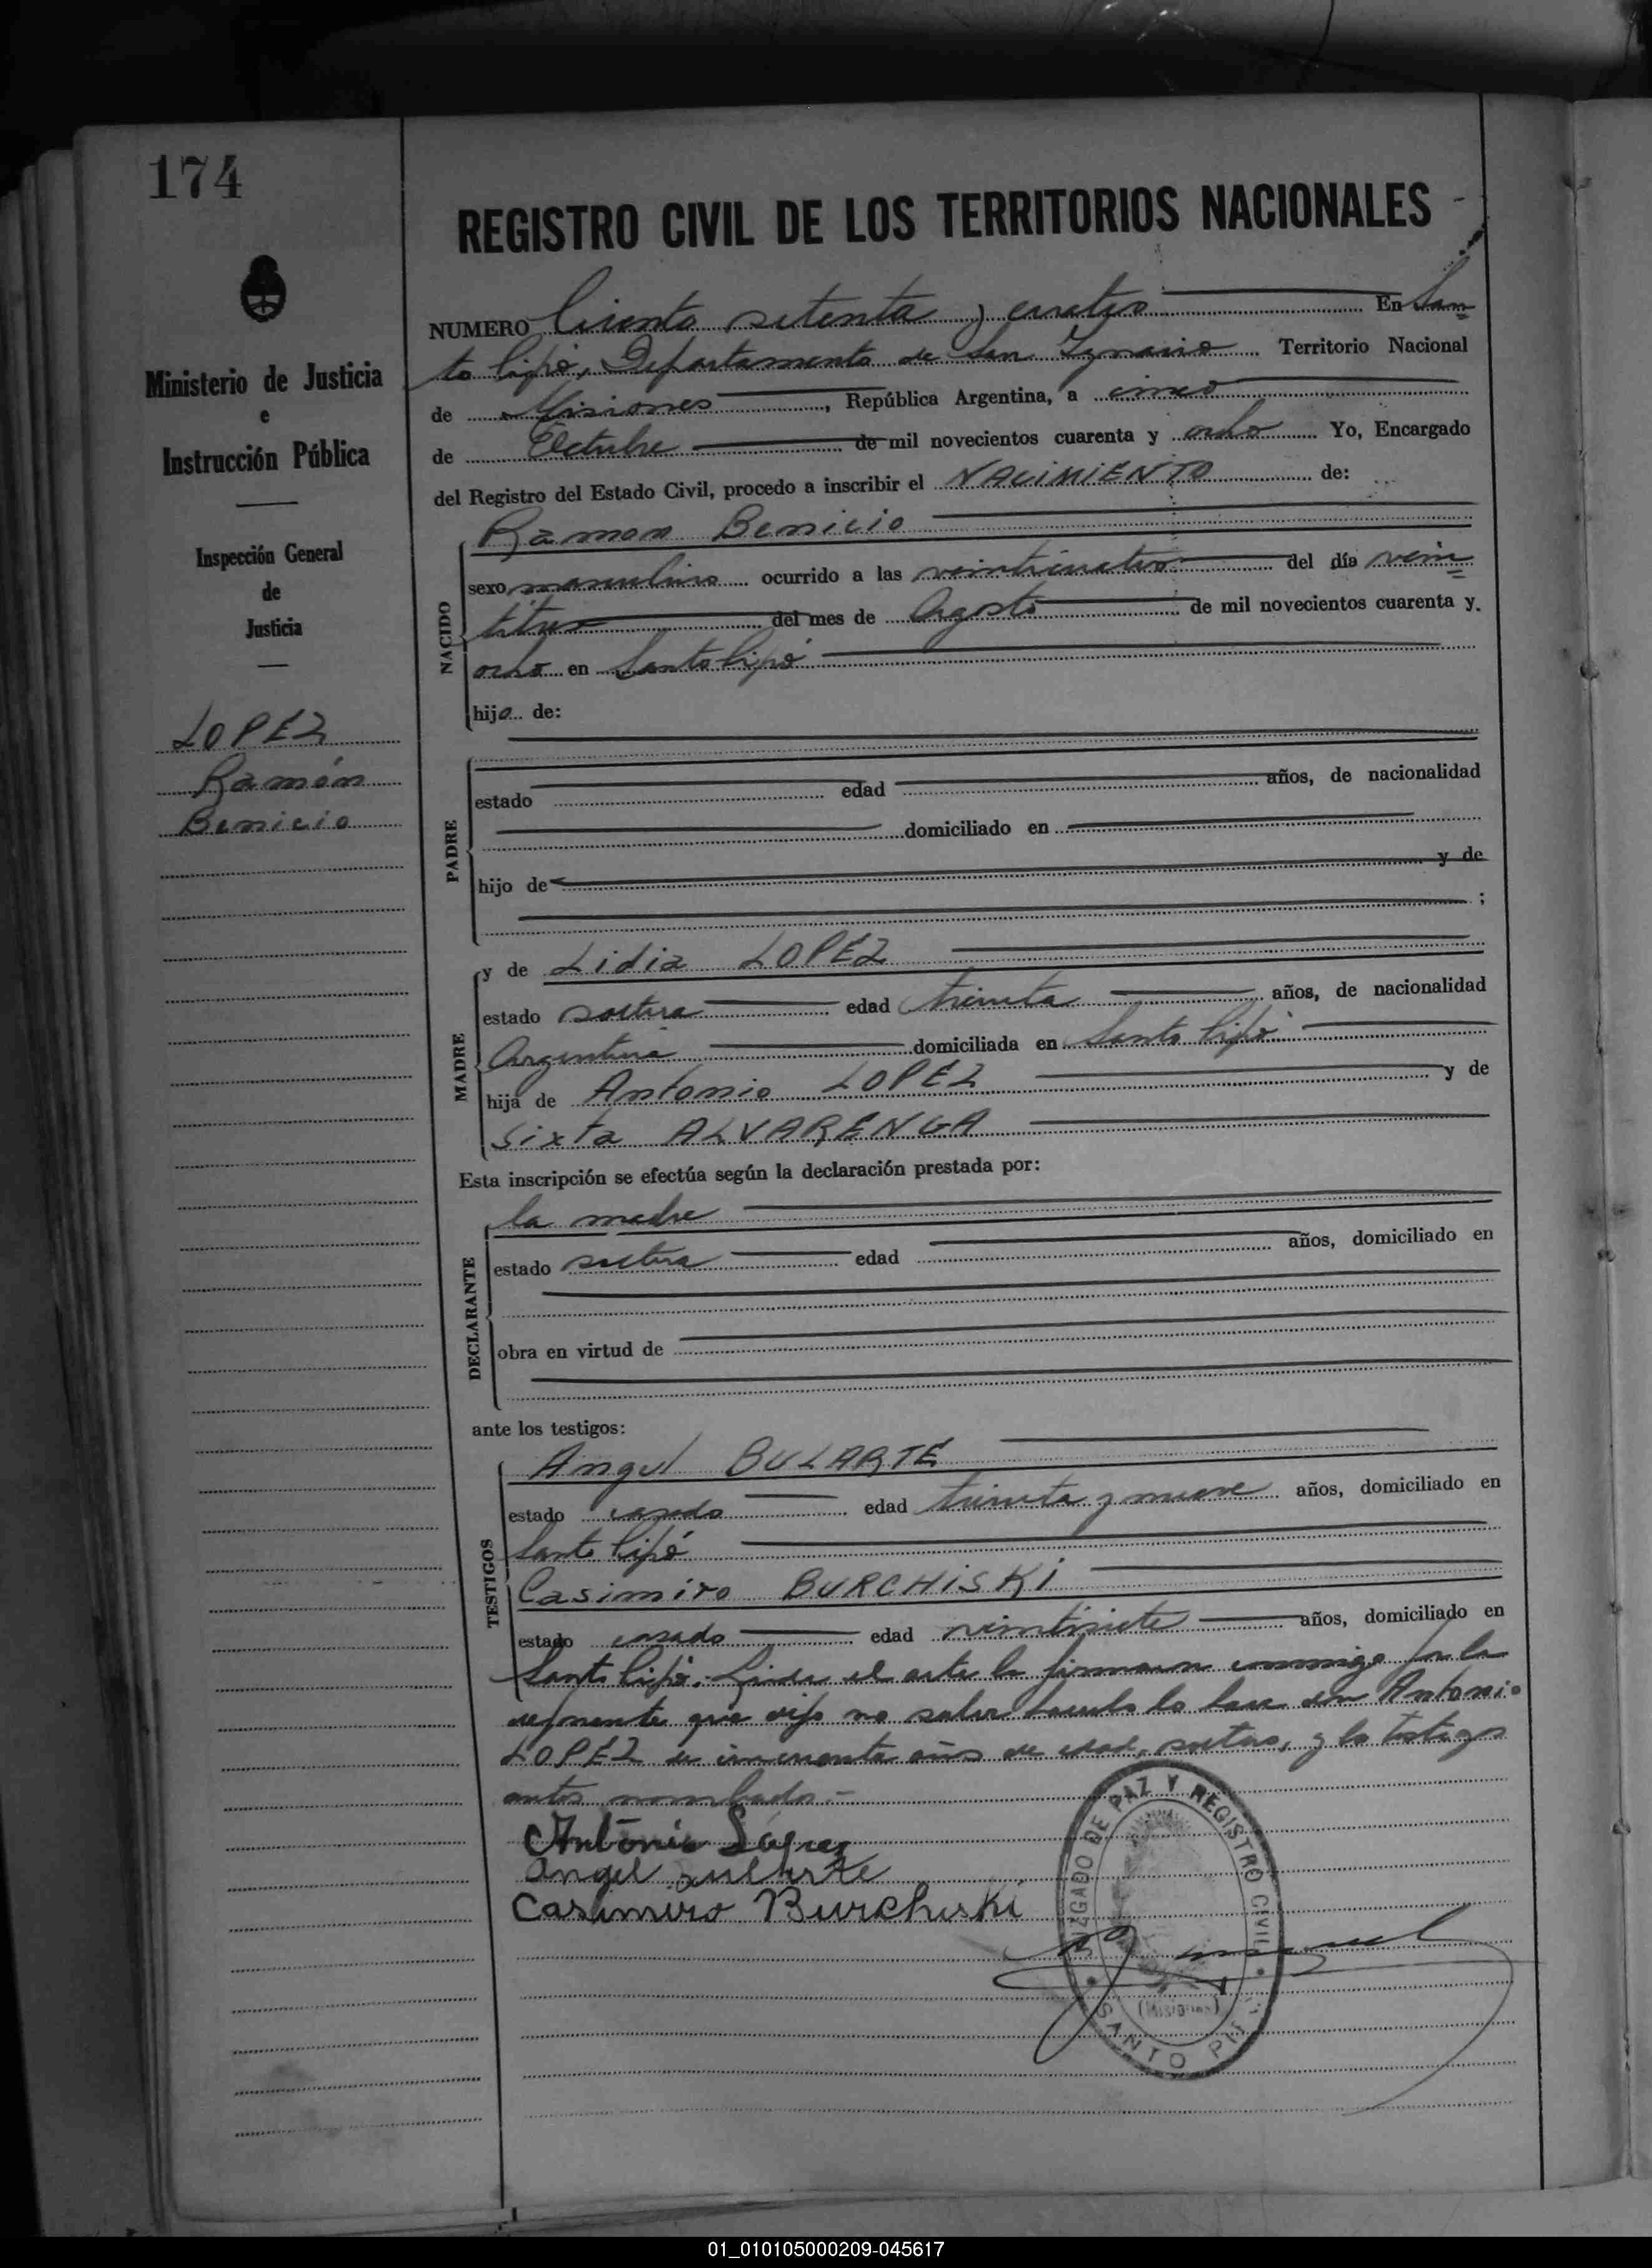 174
REGISTRO CIVIL DE LOS TERRITORIOS NACIONALES
Ministerio de Justicia
e
Instrucción Pública
Inspección General
de
Justicia
LOPEZ
Ramón
Benicio
NUMERO Ciento setenta y cuatro En San
to Pipó, Departamento de San Ignacio Territorio Nacional
de Misiones, República Argentina, a cinco
de Octubre de mil novecientos cuarenta y ocho Yo, Encargado
del Registro del Estado Civil, procedo a inscribir el NACIMIENTO de:
NACIDO
Ramon Benicio
sexo masculino ocurrido a las veinticuatro del día vein
titres del mes de Agosto de mil novecientos cuarenta y
ocho en Santo Pipó
hijo de:
PADRE
estado edad años, de nacionalidad
domiciliado en
hijo de y de
;
MADRE
y de Lidia LOPEZ
estado soltera edad treinta años, de nacionalidad
Argentina domiciliada en Santo Pipó
hija de Antonio LOPEZ y de
Sixta ALVARENGA
Esta inscripción se efectúa según la declaración prestada por:
DECLARANTE
la madre
estado soltera edad años, domiciliado en
obra en virtud de
ante los testigos:
TESTIGOS
Angel BULARTE
estado casado edad treinta y nueve años, domiciliado en
Santo Pipó
Casimiro BURCHISKI
estado casado edad veintisiete años, domiciliado en
Santo Pipó. Leida el acta la firmaron conmigo por la
que dijo no saber hacerlo lo hace don Antonio
LOPEZ de cincuenta años de edad, soltero, y los testigos
antes nombrados.-
Antonio López
Angel Bularte
Casimiro Burchiski
JUZGADO DE PAZ Y REGISTRO CIVIL
(Misiones)
SANTO PIPÓ
01_010105000209-045617